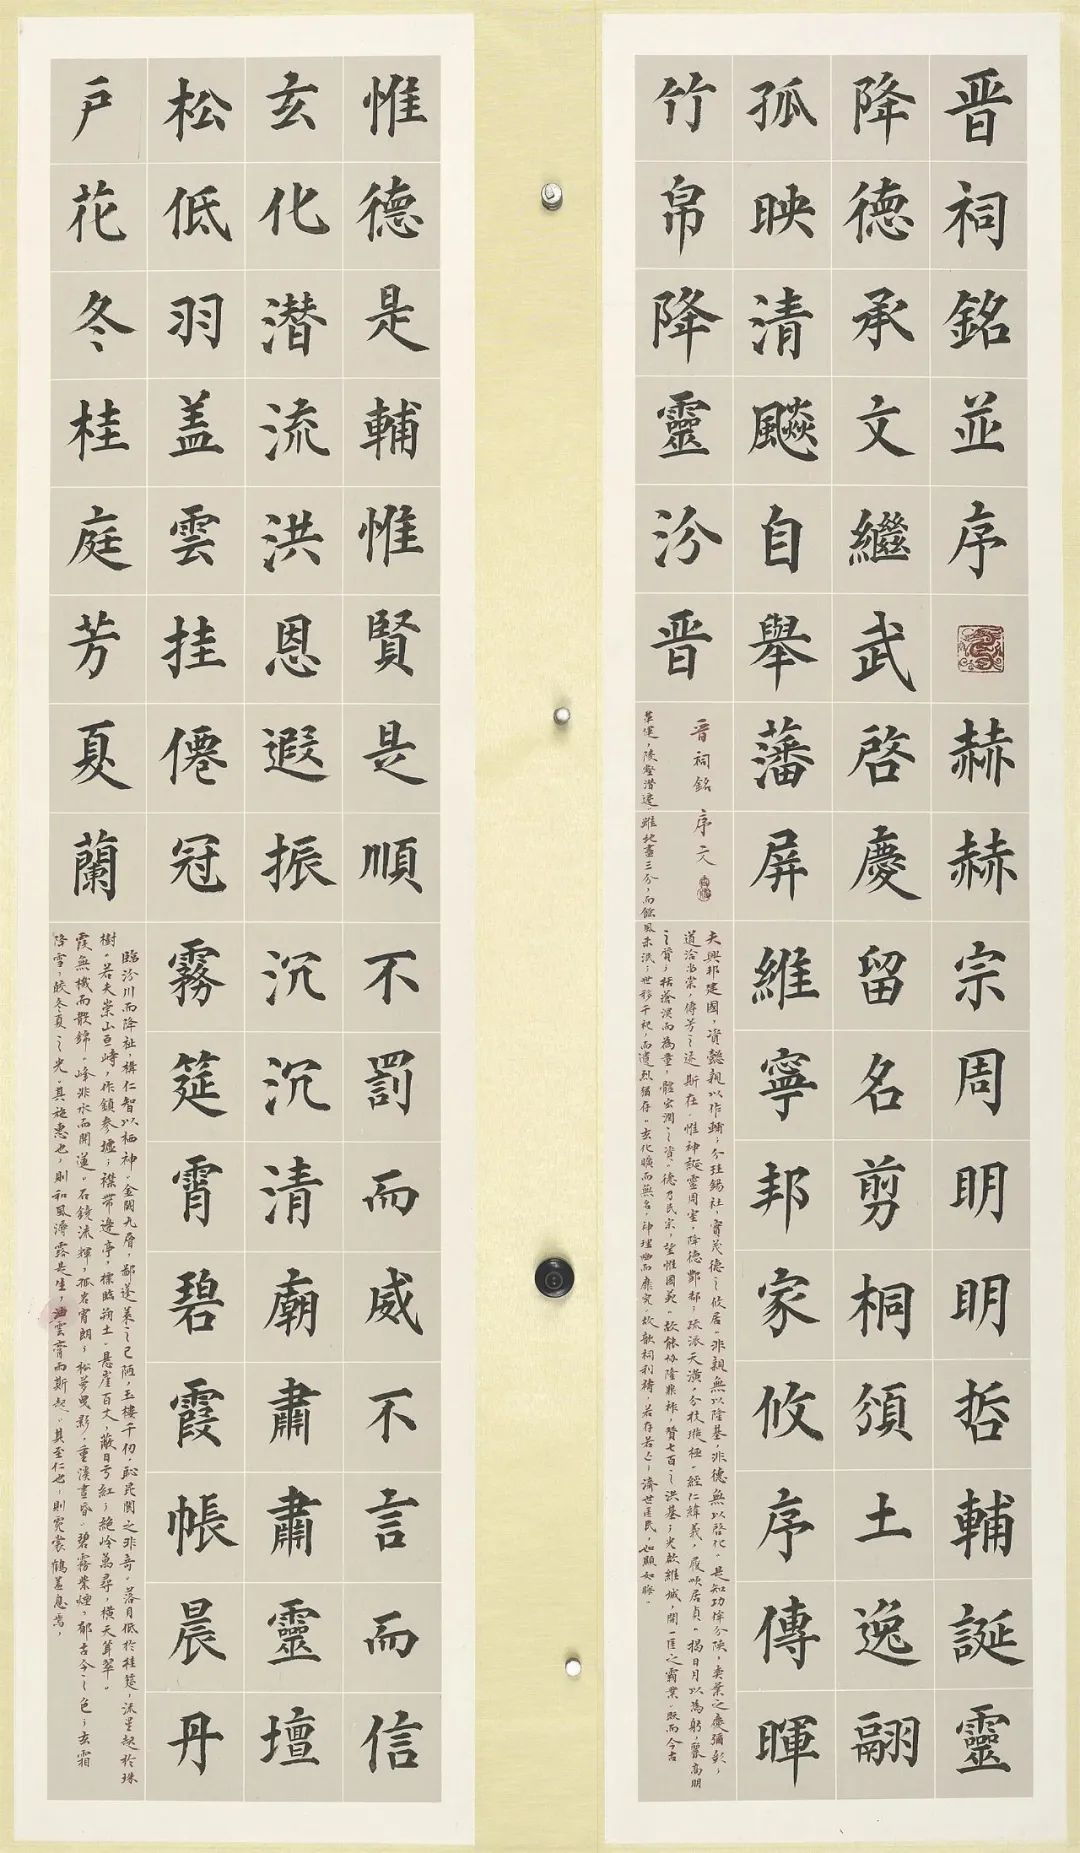 晋祠銘並序赫赫宗周明明哲輔誕靈
降德承文繼武啓慶留名剪桐頒土逸翮
孤映清飈自舉藩屏維寧邦家攸序傳暉
竹帛降靈汾晋
晋祠銘 序文
夫興邦建國，資懿親以作輔；分珪錫社，實茂德之攸居。非親無以隆基，非德無以啓化。是知功侔分陝，奕葉之慶彌彰；
道洽留棠，傳芳之迹斯在。惟神誕靈周室，降德酆都；疏派天潢，分枝璇極。經仁緯義，履順居貞。揭日月以為躬，麗高明
之質；括滄溟而為量，體宏潤之資。德乃民宗，望惟國範。故能協隆鼎祚，贊七百之洪基；光啟維城，開一匡之霸業。既而今古
革運，陵壑潜遷。雖地盡三分，而餘風未泯；世移千祀，而遺烈猶存。玄化曠而無名，神理幽而靡究。故歆祠利禱，若存若亡；濟世匡民，如顯如晦。
惟德是輔惟賢是順不罰而威不言而信
玄化潜流洪恩遐振沉沉清廟肅肅靈壇
松低羽盖雲挂僊冠霧筵霄碧霞帳晨丹
户花冬桂庭芳夏蘭
臨汾川而降祉，構仁智以栖神。金闕九層，鄙蓬萊之已陋；玉樓千仞，恥崑閬之非奇。落月低於桂筵，流星起於珠
樹。若夫崇山亘峙，作鎮參墟；襟帶邊亭，標臨朔土。悬崖百丈，蔽日亏紅；絕岭萬尋，橫天聳翠。
霞無機而散錦，峰非水而開蓮。石鏡流輝，孤岩宵朗；松蘿曳影，重溪晝昏。碧霧紫煙，郁古今之色；玄霜
降雪，皎冬夏之光。其施惠也，則和風溽露是生，油雲膏雨斯起。其至仁也，則霓裳鶴蓋息焉，